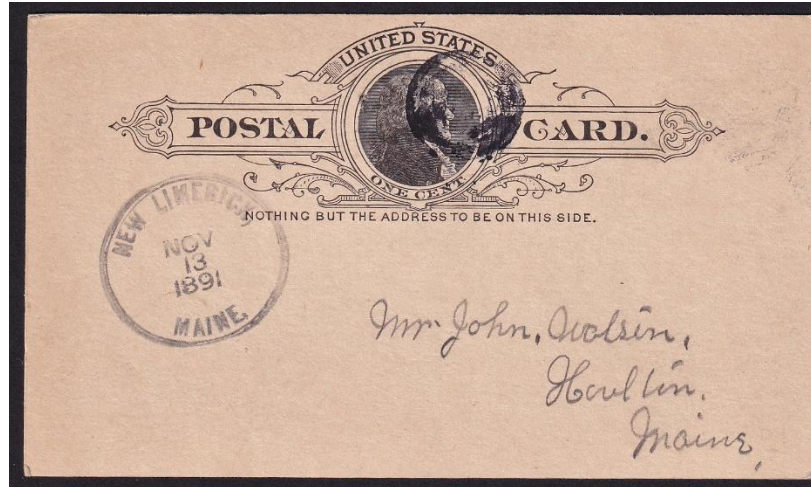 UNITED STATES
POSTAL CARD.
ONE CENT
NOTHING BUT THE ADDRESS TO BE ON THIS SIDE.
NEW LIMERICK,
NOV
13
1891
MAINE.
Mr John. Watson.
Houlton.
Maine,